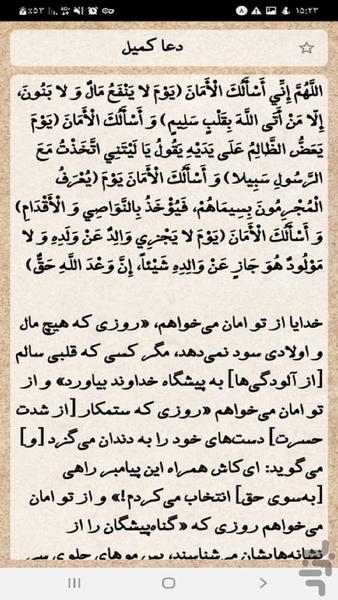 ٪۵۳ ۱۵:۲۳
دعا کمیل
اللَّهُمَّ إِنِّي أَسْأَلُكَ الْأَمَانَ (يَوْمَ لا يَنْفَعُ مَالٌ وَ لا بَنُونَ،
إِلّا مَنْ أَتَى اللَّهَ بِقَلْبٍ سَلِيمٍ) وَ أَسْأَلُكَ الْأَمَانَ (يَوْمَ
يَعَضُّ الظَّالِمُ عَلَى يَدَيْهِ يَقُولُ يَا لَيْتَنِي اتَّخَذْتُ مَعَ
الرَّسُولِ سَبِيلا) وَ أَسْأَلُكَ الْأَمَانَ يَوْمَ (يُعْرَفُ
الْمُجْرِمُونَ بِسِيمَاهُمْ، فَيُؤْخَذُ بِالنَّوَاصِي وَ الْأَقْدَامِ)
وَ أَسْأَلُكَ الْأَمَانَ (يَوْمَ لا يَجْزِي وَالِدٌ عَنْ وَلَدِهِ وَ لا
مَوْلُودٌ هُوَ جَازٍ عَنْ وَالِدِهِ شَيْئاً، إِنَّ وَعْدَ اللَّهِ حَقٌّ)
خدایا از تو امان می‌خواهم، «روزی که هیچ مال
و اولادی سود نمی‌دهد، مگر کسی که قلبی سالم
[از آلودگی‌ها] به پیشگاه خداوند بیاورد» و از
تو امان می‌خواهم «روزی که ستمکار [از شدت
حسرت] دست‌های خود را به دندان می‌گزد [و]
می‌گوید: ای‌کاش همراه این پیامبر راهی
[به‌سوی حق] انتخاب می‌کردم!» و از تو امان
می‌خواهم روزی که «گناه‌پیشگان را از
نشانه‌هایشان می‌شناسند، پس موهای جلوی سر